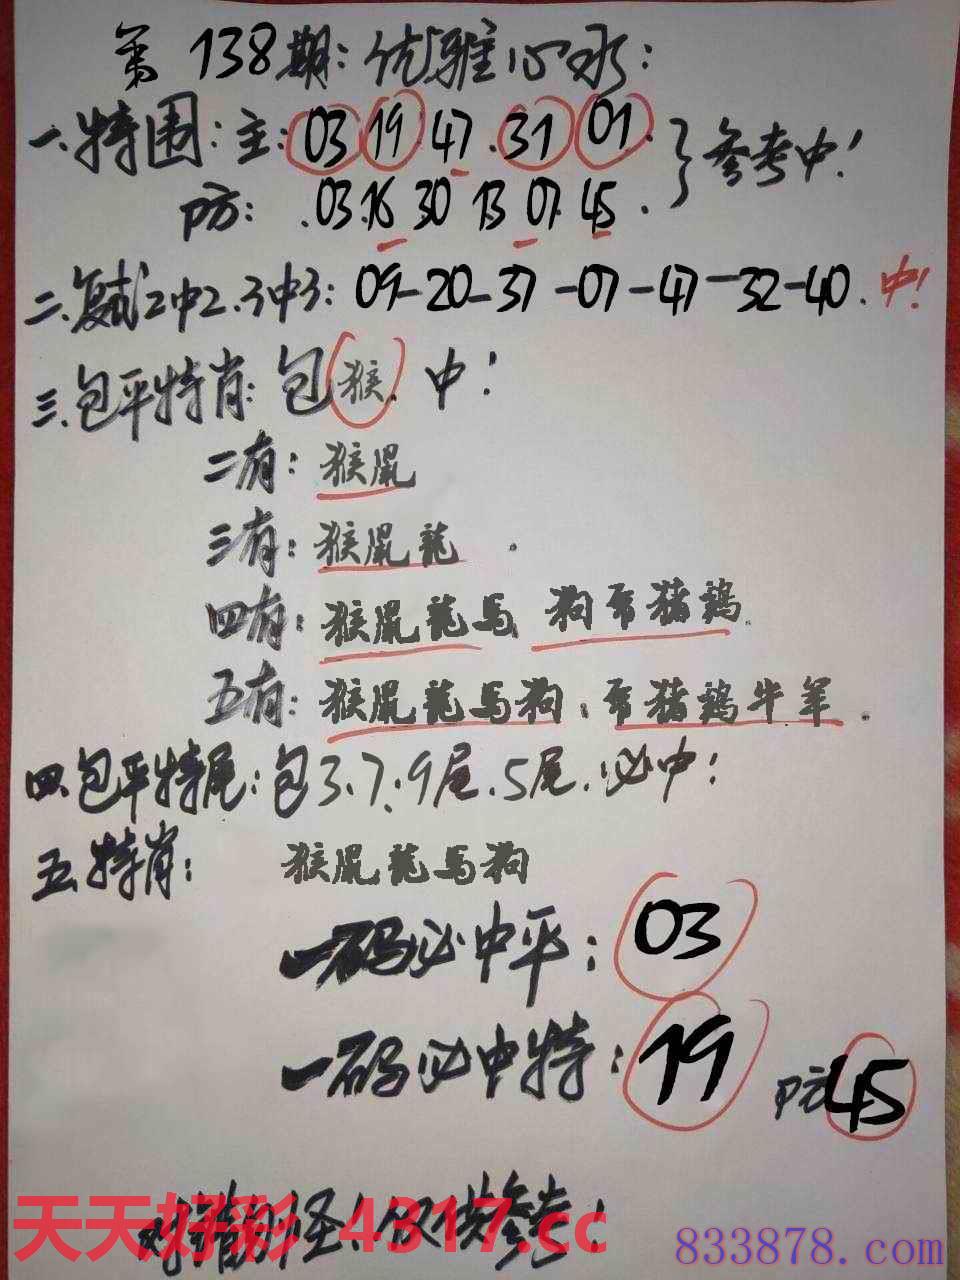 第138期：优雅心水：
一.特围：主：03 19 47.31 01.
防：.03.16 30 13 07.45.
}参考中！
二.复试2中2.3中3：09-20-37-07-47-32-40.中！
三.包平特肖：包猴.中！
二有：猴鼠
三有：猴鼠龍.
四有：猴鼠龍马.狗兔猪鸡.
五有：猴鼠龍马狗.兔猪鸡牛羊.
四.包平特尾：包3.7.9尾.5尾.必中！
五.特肖：猴鼠龍马狗
一码必中平：03
一码必中特：19 防45
对错勿怪！仅供参考！
天天好彩 4317.cc
833878.com